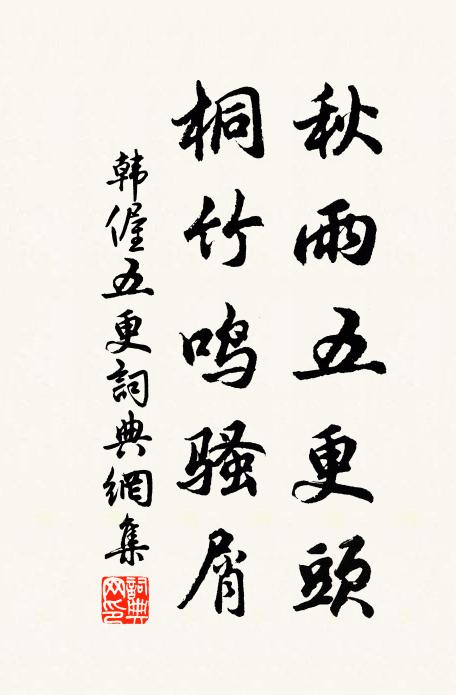 秋雨五更頭
桐竹鸣骚屑
韩偓五更詞典網集
詞典网印